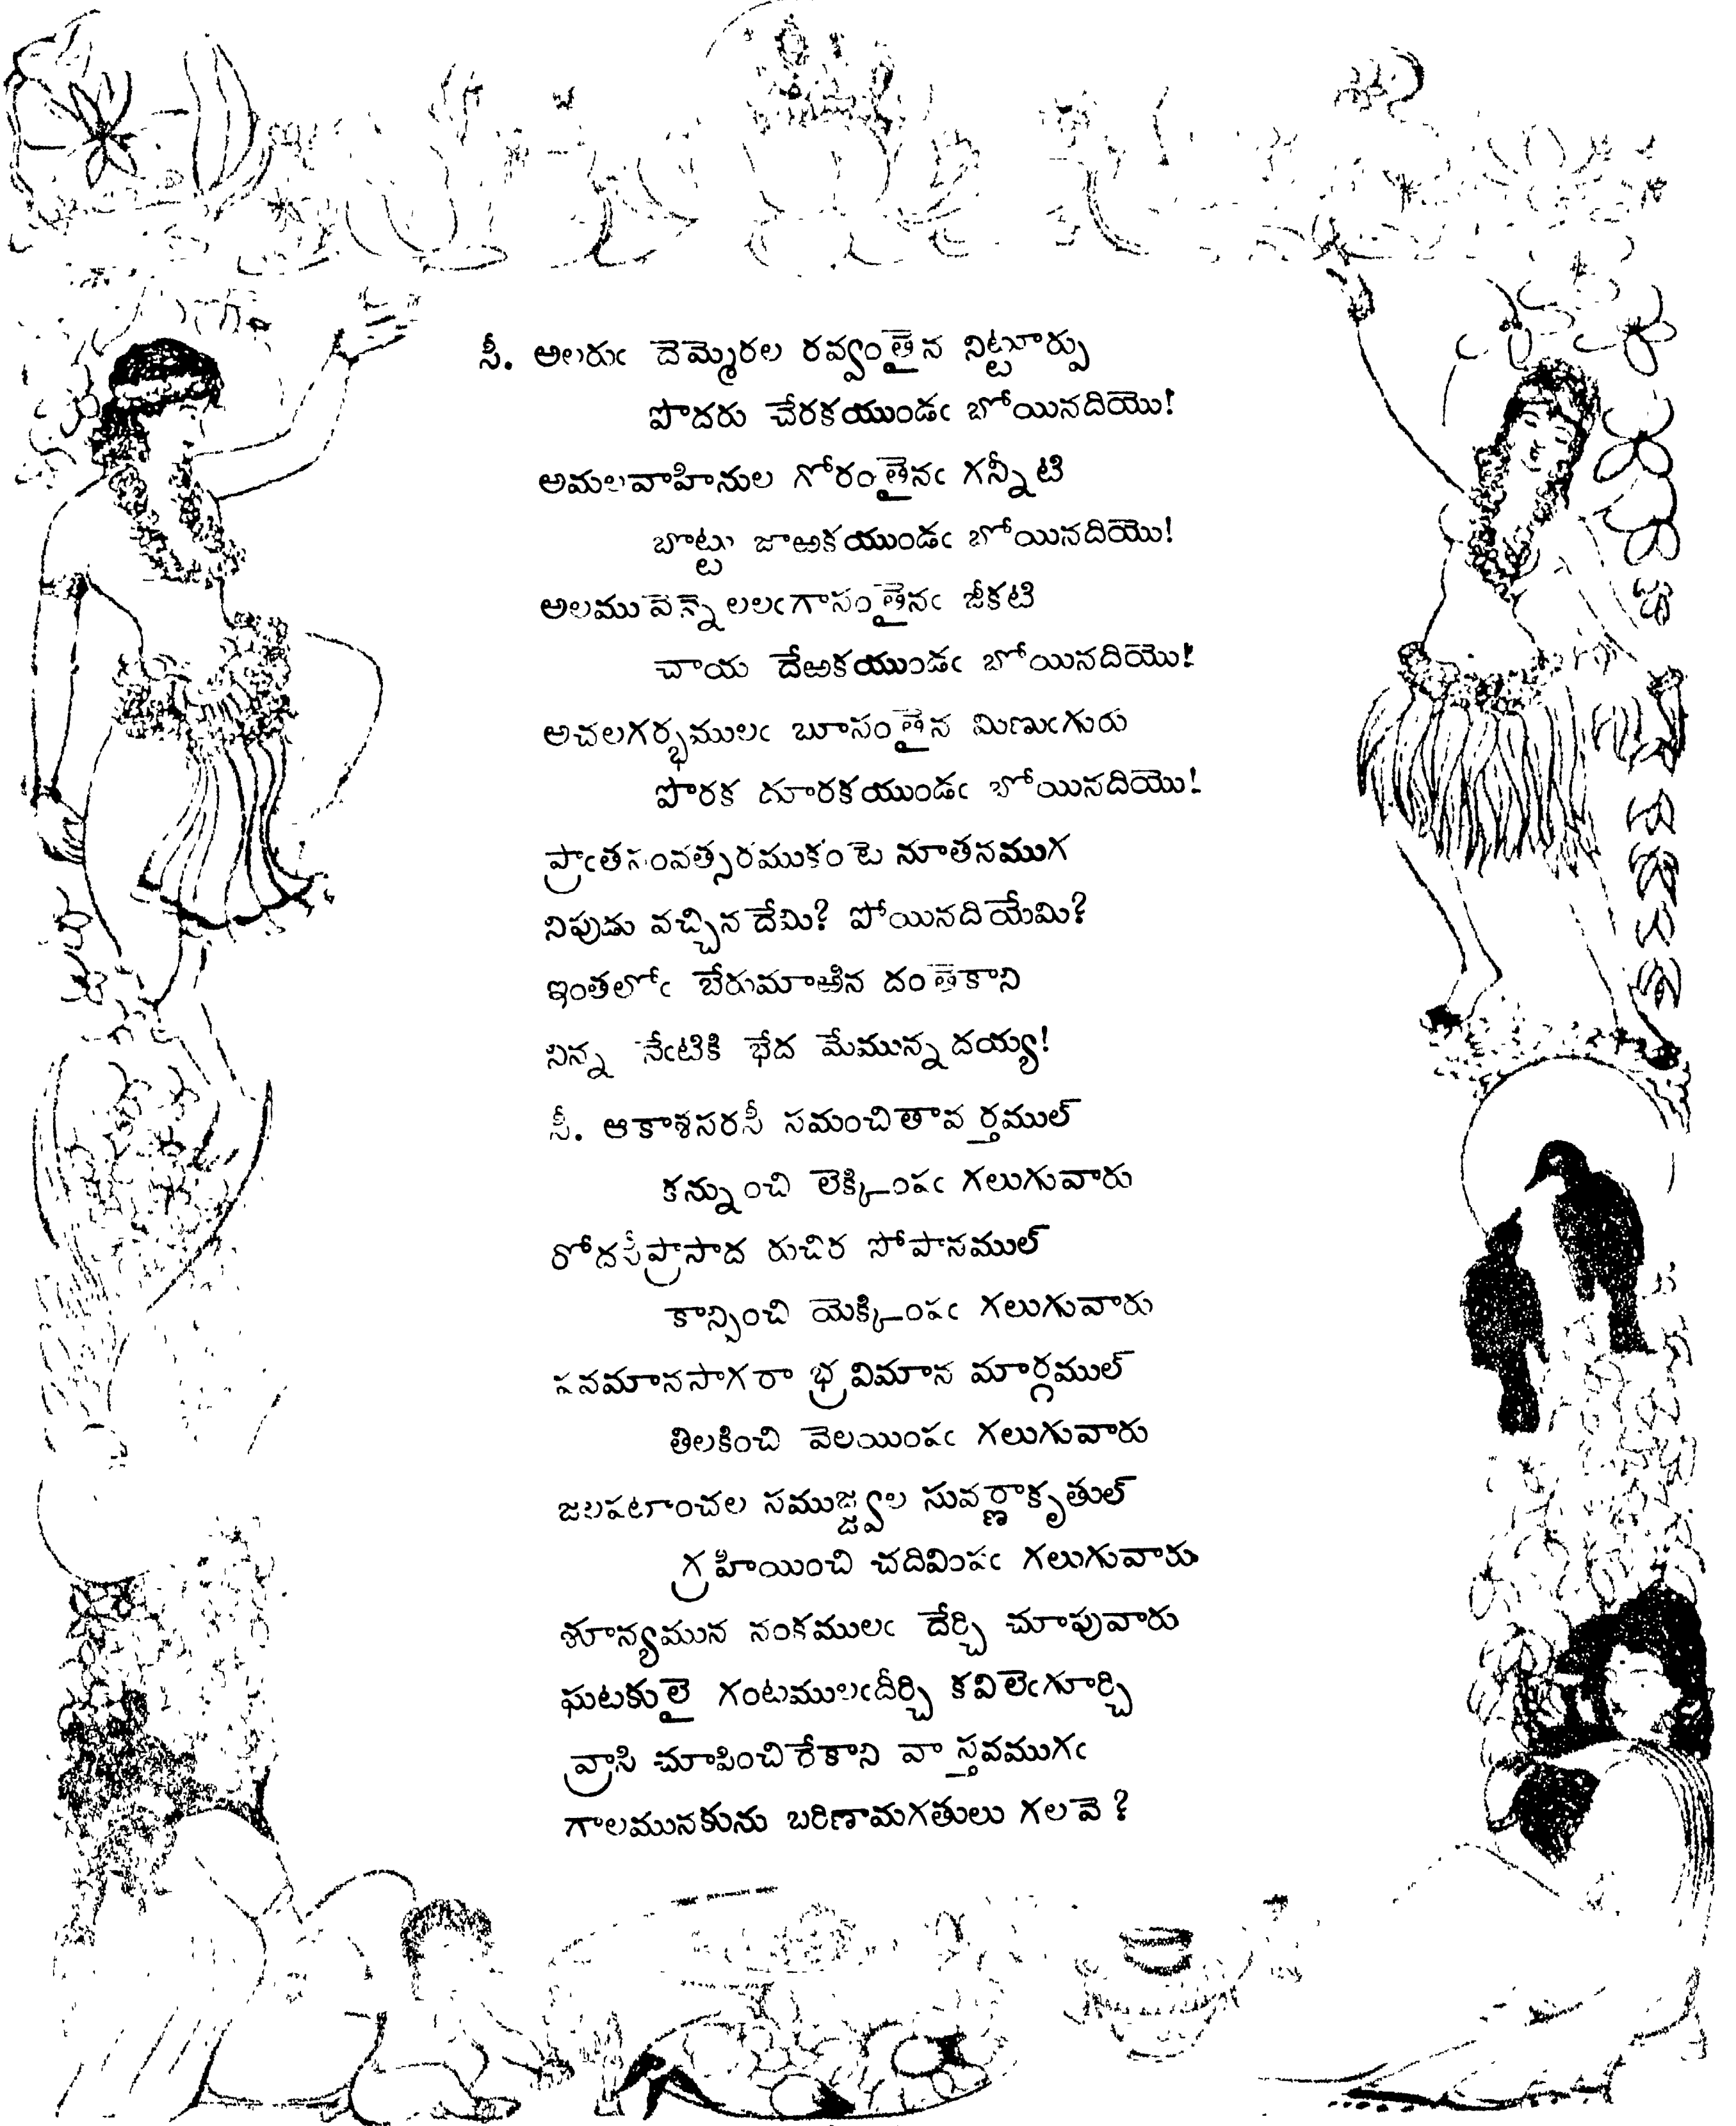 సీ. అలరుఁ దెమ్మెరల రవ్వంతైన నిట్టూర్పు
పొదరు చేరకయుండఁ బోయినదియొ!
అమలవాహినుల గోరంతైనఁ గన్నీటి
బొట్టు జాఱకయుండఁ బోయినదియొ!
అలమువెన్నెలలఁగాసంతైనఁ జీకటి
చాయ దేఱకయుండఁ బోయినదియొ!
అచలగర్భములఁ బూసంతైన మిణుఁగురు
పొరక దూరకయుండఁ బోయినదియొ!
ప్రాఁతసంవత్సరముకంటె నూతనముగ
నిపుడు వచ్చిన దేమి? పోయినదియేమి?
ఇంతలోఁ బేరుమాఱిన దంతెకాని
నిన్న నేఁటికి భేద మేమున్నదయ్య!
సీ. ఆకాశసరసీ సమంచితావర్తముల్
కన్నుంచి లెక్కింపఁ గలుగువారు
రోదసీప్రాసాద రుచిర సోపానముల్
కాన్పించి యెక్కింపఁ గలుగువారు
పవమానసాగరాభ్రవిమాన మార్గముల్
తిలకించి వెలయింపఁ గలుగువారు
జలపటాంచల సముజ్జ్వల సువర్ణాకృతుల్
గ్రహియించి చదివింపఁ గలుగువారు
శూన్యమున నంకములఁ దేర్చి చూపువారు
ఘటకులై గంటములఁదీర్చి కవిలెఁగూర్చి
వ్రాసి చూపించిరేకాని వాస్తవముగఁ
గాలమునకును బరిణామగతులు గలవె?